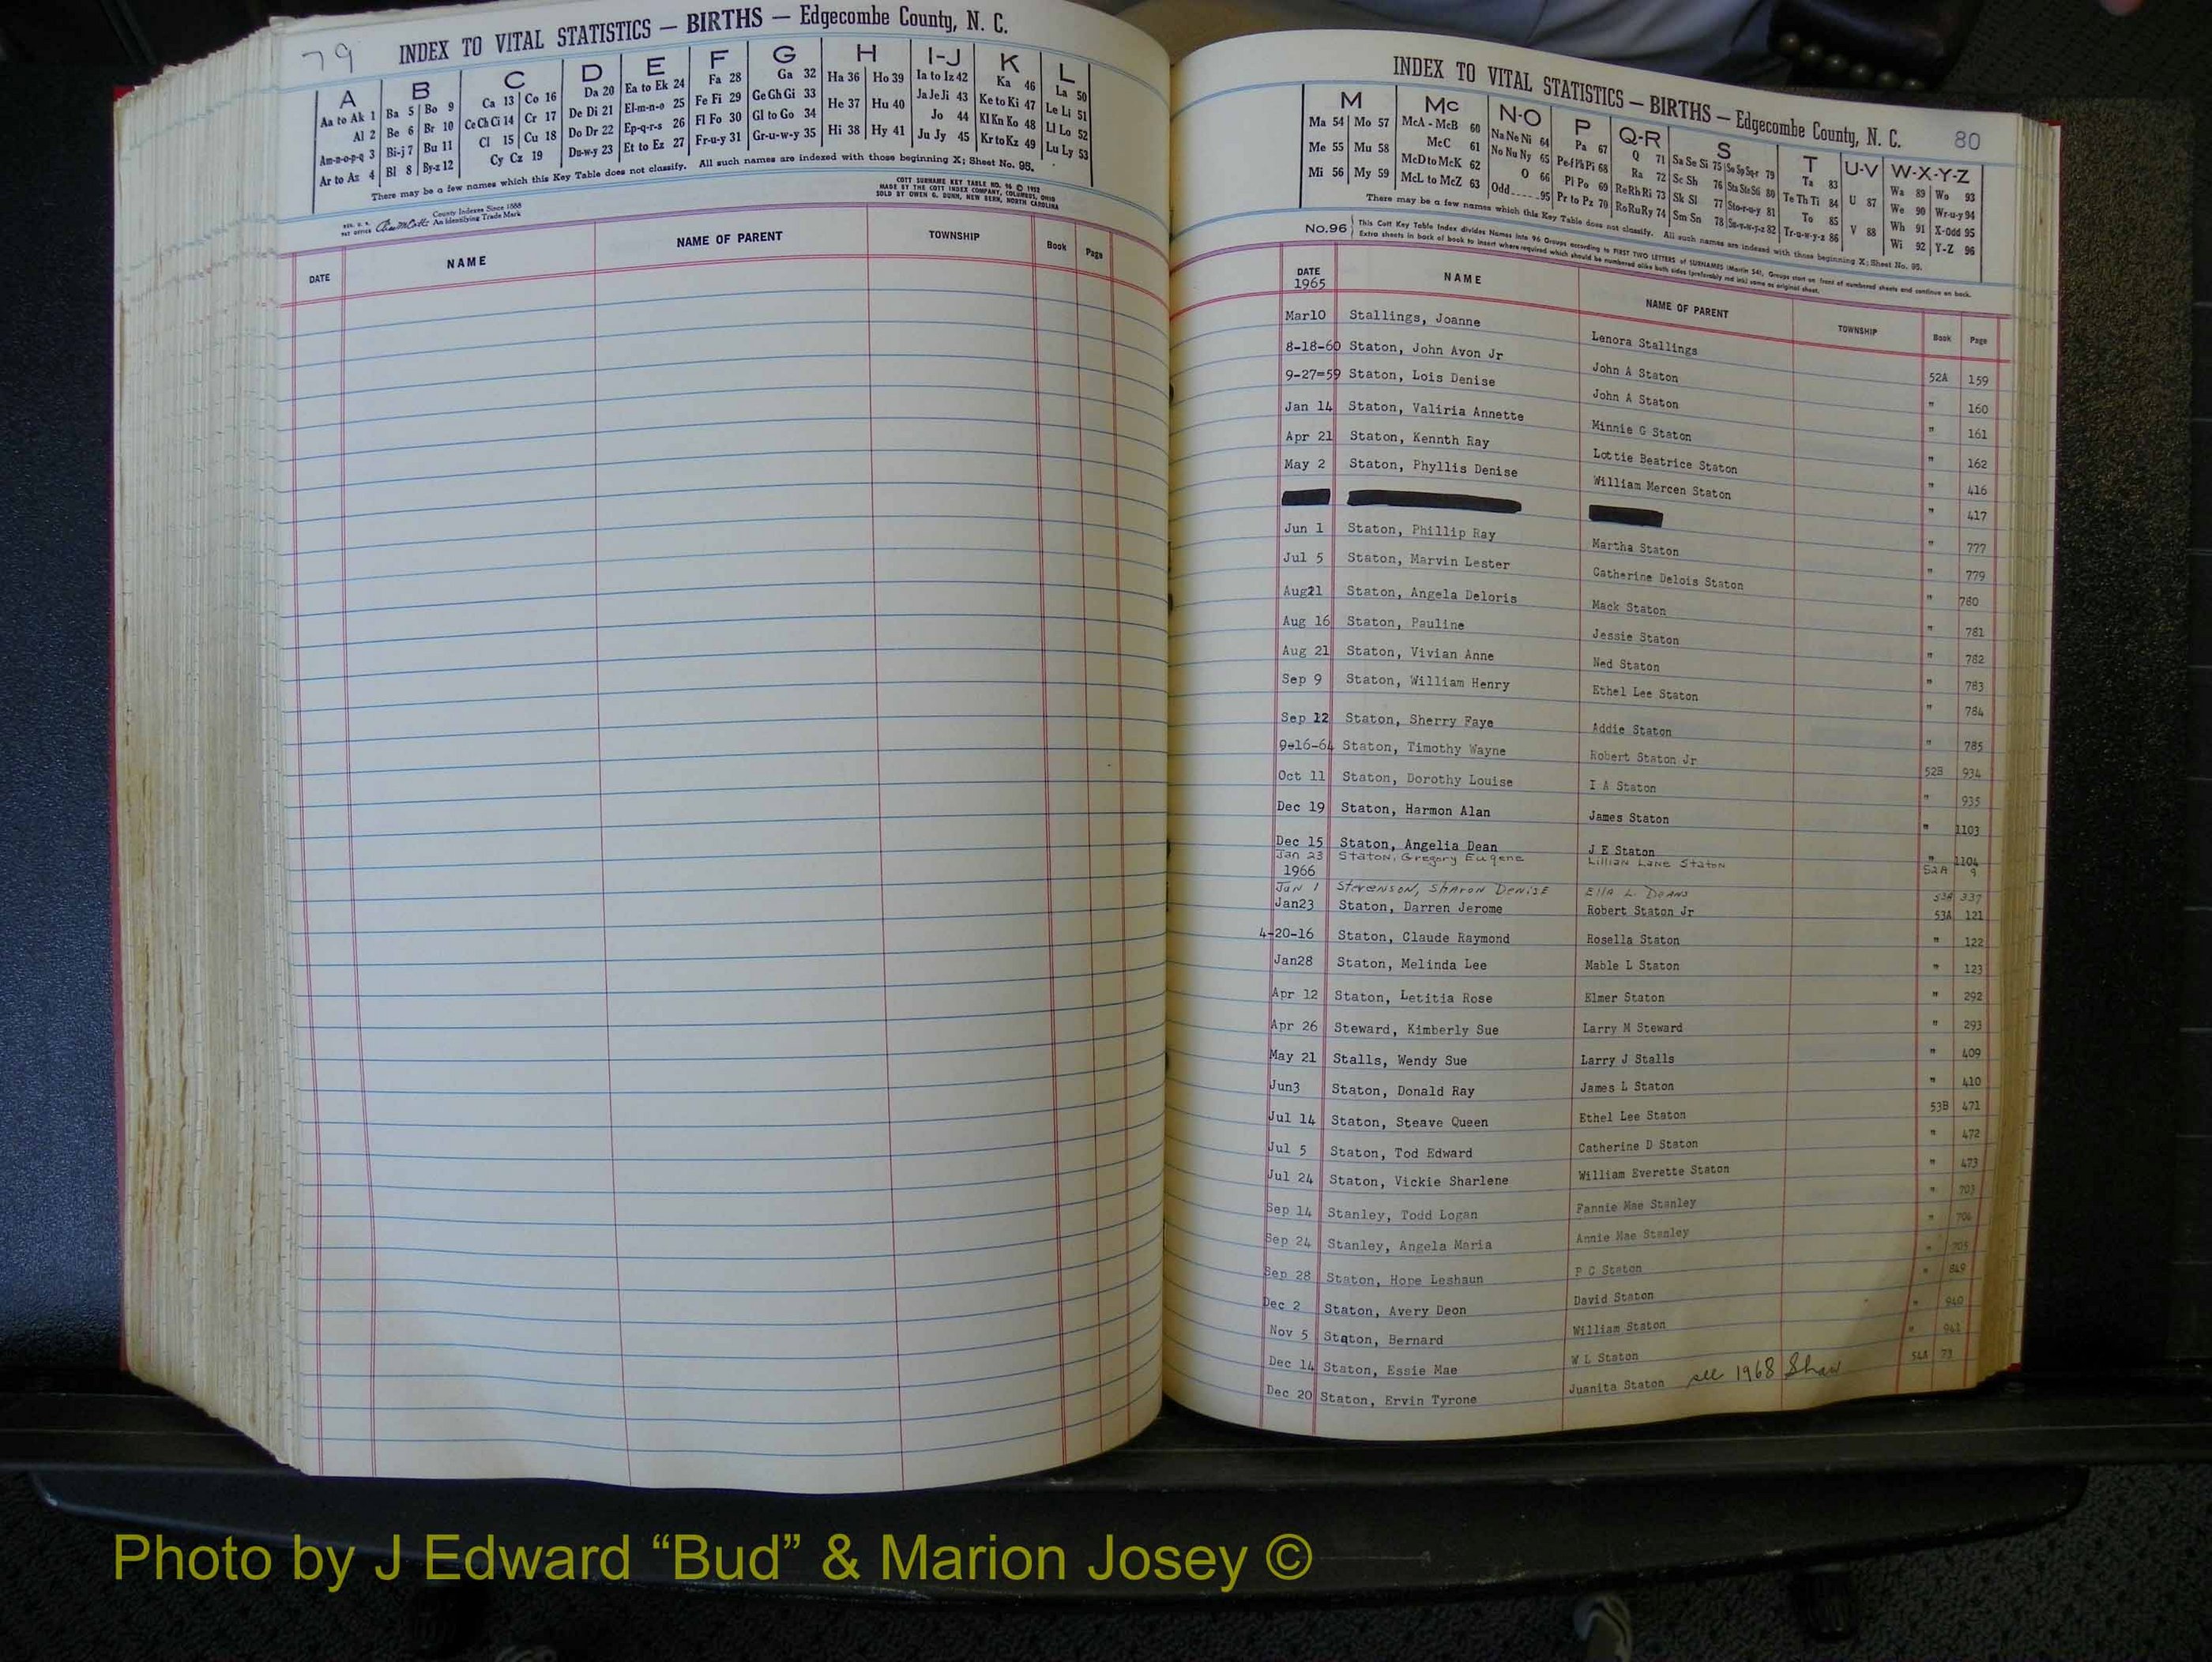 79
INDEX TO VITAL STATISTICS — BIRTHS — Edgecombe County, N. C.
A B C D E F G H I-J K L
Aa to Ak 1 Ba 5 Bo 9 Ca 13 Co 16 Da 20 Ea to Ek 24 Fa 28 Ga 32 Ha 36 Ho 39 Ia to Iz 42 Ka 46 La 50
Al 2 Be 6 Br 10 Ce Ch Ci 14 Cr 17 De Di 21 El-m-n-o 25 Fe Fi 29 Ge Gh Gi 33 He 37 Hu 40 Ja Je Ji 43 Ke to Ki 47 Le Li 51
Am-n-o-p-q 3 Bi-j 7 Bu 11 Cl 15 Cu 18 Do Dr 22 Ep-q-r-s 26 Fl Fo 30 Gl to Go 34 Hi 38 Hy 41 Jo 44 Kl Kn Ko 48 Ll Lo 52
Ar to Az 4 Bl 8 By-z 12 Cy Cz 19 Du-w-y 23 Et to Ez 27 Fr-u-y 31 Gr-u-w-y 35 Ju Jy 45 Kr to Kz 49 Lu Ly 53
There may be a few names which this Key Table does not classify. All such names are indexed with those beginning X; Sheet No. 95.
COTT SURNAME KEY TABLE NO. 96 © 1952
MADE BY THE COTT INDEX COMPANY, COLUMBUS, OHIO
SOLD BY OWEN G. DUNN, NEW BERN, NORTH CAROLINA
REG. U. S. PAT OFFICE
County Indexes Since 1888
An Identifying Trade Mark
DATE NAME NAME OF PARENT TOWNSHIP Book Page
INDEX TO VITAL STATISTICS — BIRTHS — Edgecombe County, N. C. 80
M Mc N-O P Q-R S T U-V W-X-Y-Z
Ma 54 Mo 57 McA - McB 60 Na Ne Ni 64 Pa 67 Q 71 Sa Se Si 75 So Sp Sq-r 79 Ta 83 U 87 Wa 89 Wo 93
Me 55 Mu 58 McC 61 No Nu Ny 65 Pe-f Ph Pi 68 Ra 72 Sc Sh 76 Sta Ste Sti 80 Te Th Ti 84 V 88 We 90 Wr-u-y 94
Mi 56 My 59 McD to McK 62 O 66 Pl Po 69 Re Rh Ri 73 Sk Sl 77 Sto-r-u-y 81 To 85 Wh 91 X-Odd 95
McL to McZ 63 Odd 95 Pr to Pz 70 Ro Ru Ry 74 Sm Sn 78 Su-v-w-y-z 82 Tr-u-w-y-z 86 Wi 92 Y-Z 96
There may be a few names which this Key Table does not classify. All such names are indexed with those beginning X; Sheet No. 95.
No.96 This Cott Key Table Index divides Names into 96 Groups according to FIRST TWO LETTERS of SURNAMES (Martin 54). Groups start on front of numbered sheets and continue on back.
Extra sheets in back of book to insert where required which should be numbered alike both sides (preferably red ink) same as original sheet.
DATE NAME NAME OF PARENT TOWNSHIP Book Page
1965
Mar10 Stallings, Joanne Lenora Stallings 52A 159
8-18-60 Staton, John Avon Jr John A Staton " 160
9-27=59 Staton, Lois Denise John A Staton " 161
Jan 14 Staton, Valiria Annette Minnie G Staton " 162
Apr 21 Staton, Kennth Ray Lottie Beatrice Staton " 416
May 2 Staton, Phyllis Denise William Mercen Staton " 417
" 777
Jun 1 Staton, Phillip Ray Martha Staton " 779
Jul 5 Staton, Marvin Lester Catherine Delois Staton " 780
Aug21 Staton, Angela Deloris Mack Staton " 781
Aug 16 Staton, Pauline Jessie Staton " 782
Aug 21 Staton, Vivian Anne Ned Staton " 783
Sep 9 Staton, William Henry Ethel Lee Staton " 784
Sep 12 Staton, Sherry Faye Addie Staton " 785
9-16-64 Staton, Timothy Wayne Robert Staton Jr 52B 934
Oct 11 Staton, Dorothy Louise I A Staton " 935
Dec 19 Staton, Harmon Alan James Staton " 1103
Dec 15 Staton, Angelia Dean J E Staton " 1104
Jan 23 Staton, Gregory Eugene Lillian Lane Staton 52A 9
1966
Jan 1 Stevenson, Sharon Denise Ella L. Deans 53A 337
Jan23 Staton, Darren Jerome Robert Staton Jr 53A 121
4-20-16 Staton, Claude Raymond Rosella Staton " 122
Jan28 Staton, Melinda Lee Mable L Staton " 123
Apr 12 Staton, Letitia Rose Elmer Staton " 292
Apr 26 Steward, Kimberly Sue Larry M Steward " 293
May 21 Stalls, Wendy Sue Larry J Stalls " 409
Jun3 Staton, Donald Ray James L Staton " 410
Jul 14 Staton, Steave Queen Ethel Lee Staton 53B 471
Jul 5 Staton, Tod Edward Catherine D Staton " 472
Jul 24 Staton, Vickie Sharlene William Everette Staton " 473
Sep 14 Stanley, Todd Logan Fannie Mae Stanley " 703
Sep 24 Stanley, Angela Maria Annie Mae Stanley " 704
Sep 28 Staton, Hope Leshaun P C Staton " 705
Dec 2 Staton, Avery Deon David Staton " 849
Nov 5 Staton, Bernard William Staton " 940
Dec 14 Staton, Essie Mae W L Staton " 941
Dec 20 Staton, Ervin Tyrone Juanita Staton see 1968 Shaw 54A 73
Photo by J Edward “Bud” & Marion Josey ©